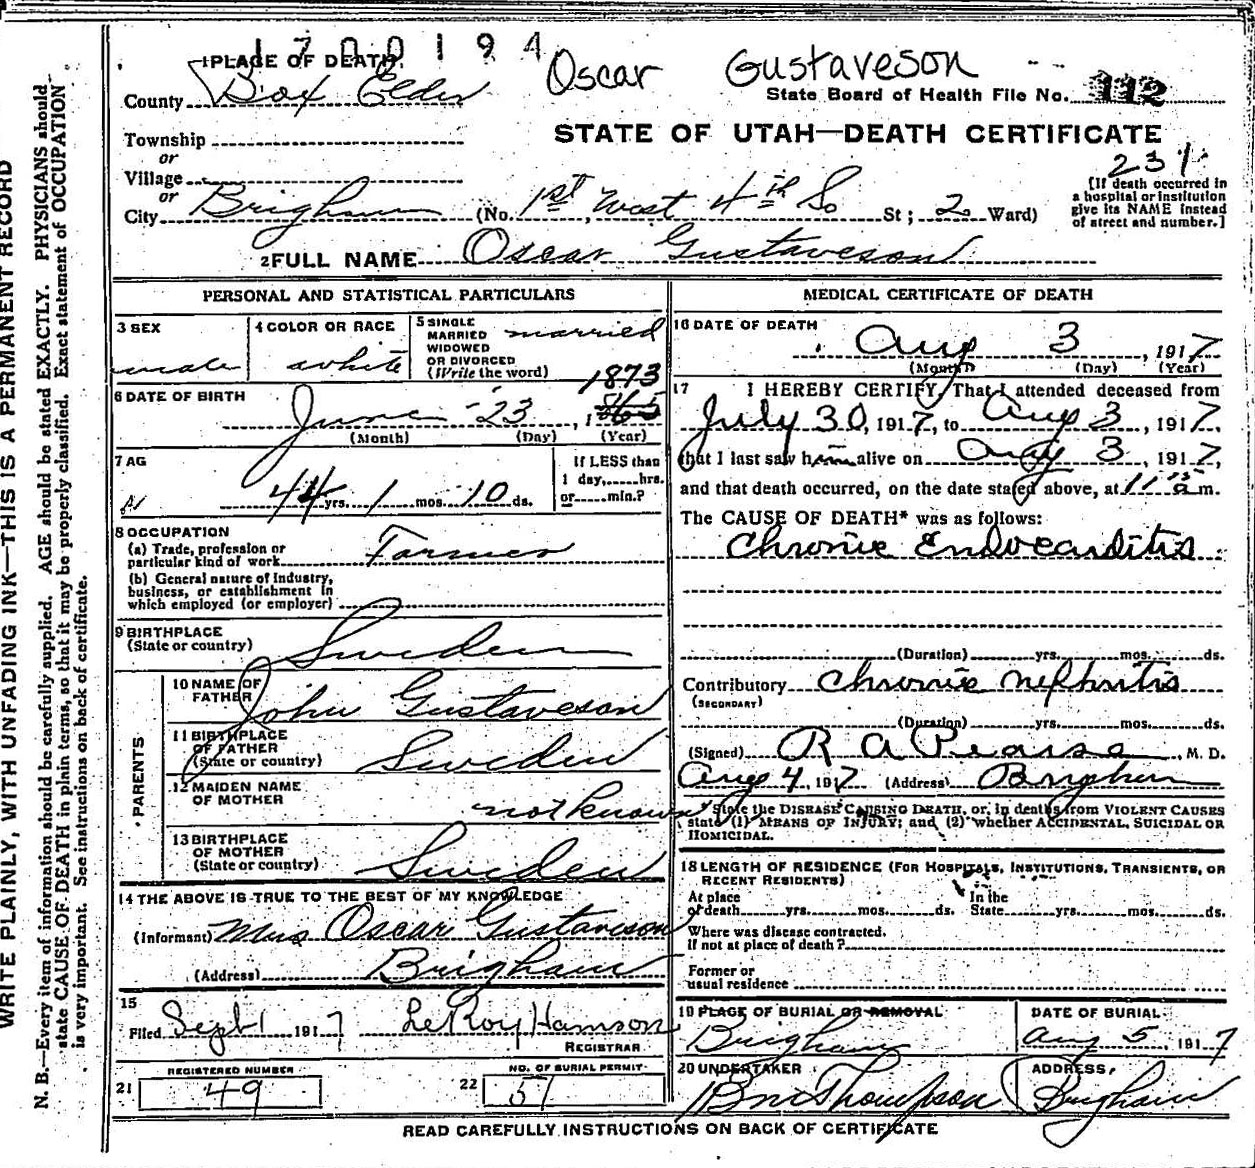 1700194
1 PLACE OF DEATH Oscar Gustaveson
County Box Elder State Board of Health File No. 112
Township
or
STATE OF UTAH—DEATH CERTIFICATE
231
Village
or
City Brigham (No. 1st West 4th So St; 2 Ward)
[If death occurred in
a hospital or institution
give its NAME instead
of street and number.]
2 FULL NAME Oscar Gustaveson
PERSONAL AND STATISTICAL PARTICULARS
3 SEX
male
4 COLOR OR RACE
white
5 SINGLE
MARRIED
WIDOWED
OR DIVORCED
(Write the word)
married
6 DATE OF BIRTH
1873
June 23, 1
(Month) (Day) (Year)
7 AG
44 yrs. 1 mos. 10 ds.
If LESS than
1 day,......hrs.
or......min.?
8 OCCUPATION
(a) Trade, profession or
particular kind of work Farmer
(b) General nature of Industry,
business, or establishment in
which employed (or employer)
9 BIRTHPLACE
(State or country) Sweden
PARENTS
10 NAME OF
FATHER John Gustaveson
11 BIRTHPLACE
OF FATHER
(State or country) Sweden
12 MAIDEN NAME
OF MOTHER not known
13 BIRTHPLACE
OF MOTHER
(State or country) Sweden
14 THE ABOVE IS TRUE TO THE BEST OF MY KNOWLEDGE
(Informant) Mrs Oscar Gustaveson
(Address) Brigham
15
Filed Sept 1 1917 LeRoy Hamson
REGISTRAR
REGISTERED NUMBER
21 49
NO. OF BURIAL PERMIT
22 51
MEDICAL CERTIFICATE OF DEATH
16 DATE OF DEATH
Aug 3, 1917
(Month) (Day) (Year)
17 I HEREBY CERTIFY, That I attended deceased from
July 30, 1917, to Aug 3, 1917,
that I last saw him alive on Aug 3, 1917,
and that death occurred, on the date stated above, at 11 15 a m.
The CAUSE OF DEATH* was as follows:
Chronic Endocarditis
(Duration) yrs. mos. ds.
Contributory Chronic Nephritis
(SECONDARY)
(Duration) yrs. mos. ds.
(Signed) R A Pearse, M. D.
Aug 4, 1917 (Address) Brigham
*State the DISEASE CAUSING DEATH, or, in deaths from VIOLENT CAUSES
state (1) MEANS OF INJURY; and (2) whether ACCIDENTAL, SUICIDAL OR
HOMICIDAL.
18 LENGTH OF RESIDENCE (FOR HOSPITALS, INSTITUTIONS, TRANSIENTS, OR
RECENT RESIDENTS)
At place In the
of death yrs. mos. ds. State yrs. mos. ds.
Where was disease contracted.
If not at place of death?
Former or
usual residence
19 PLACE OF BURIAL OR REMOVAL
Brigham
DATE OF BURIAL
Aug 5, 1917
20 UNDERTAKER
Thompson
ADDRESS,
Brigham
READ CAREFULLY INSTRUCTIONS ON BACK OF CERTIFICATE
WRITE PLAINLY, WITH UNFADING INK—THIS IS A PERMANENT RECORD
N. B.—Every item of information should be carefully supplied. AGE should be stated EXACTLY. PHYSICIANS should
state CAUSE OF DEATH in plain terms, so that it may be properly classified. Exact statement of OCCUPATION
is very important. See instructions on back of certificate.